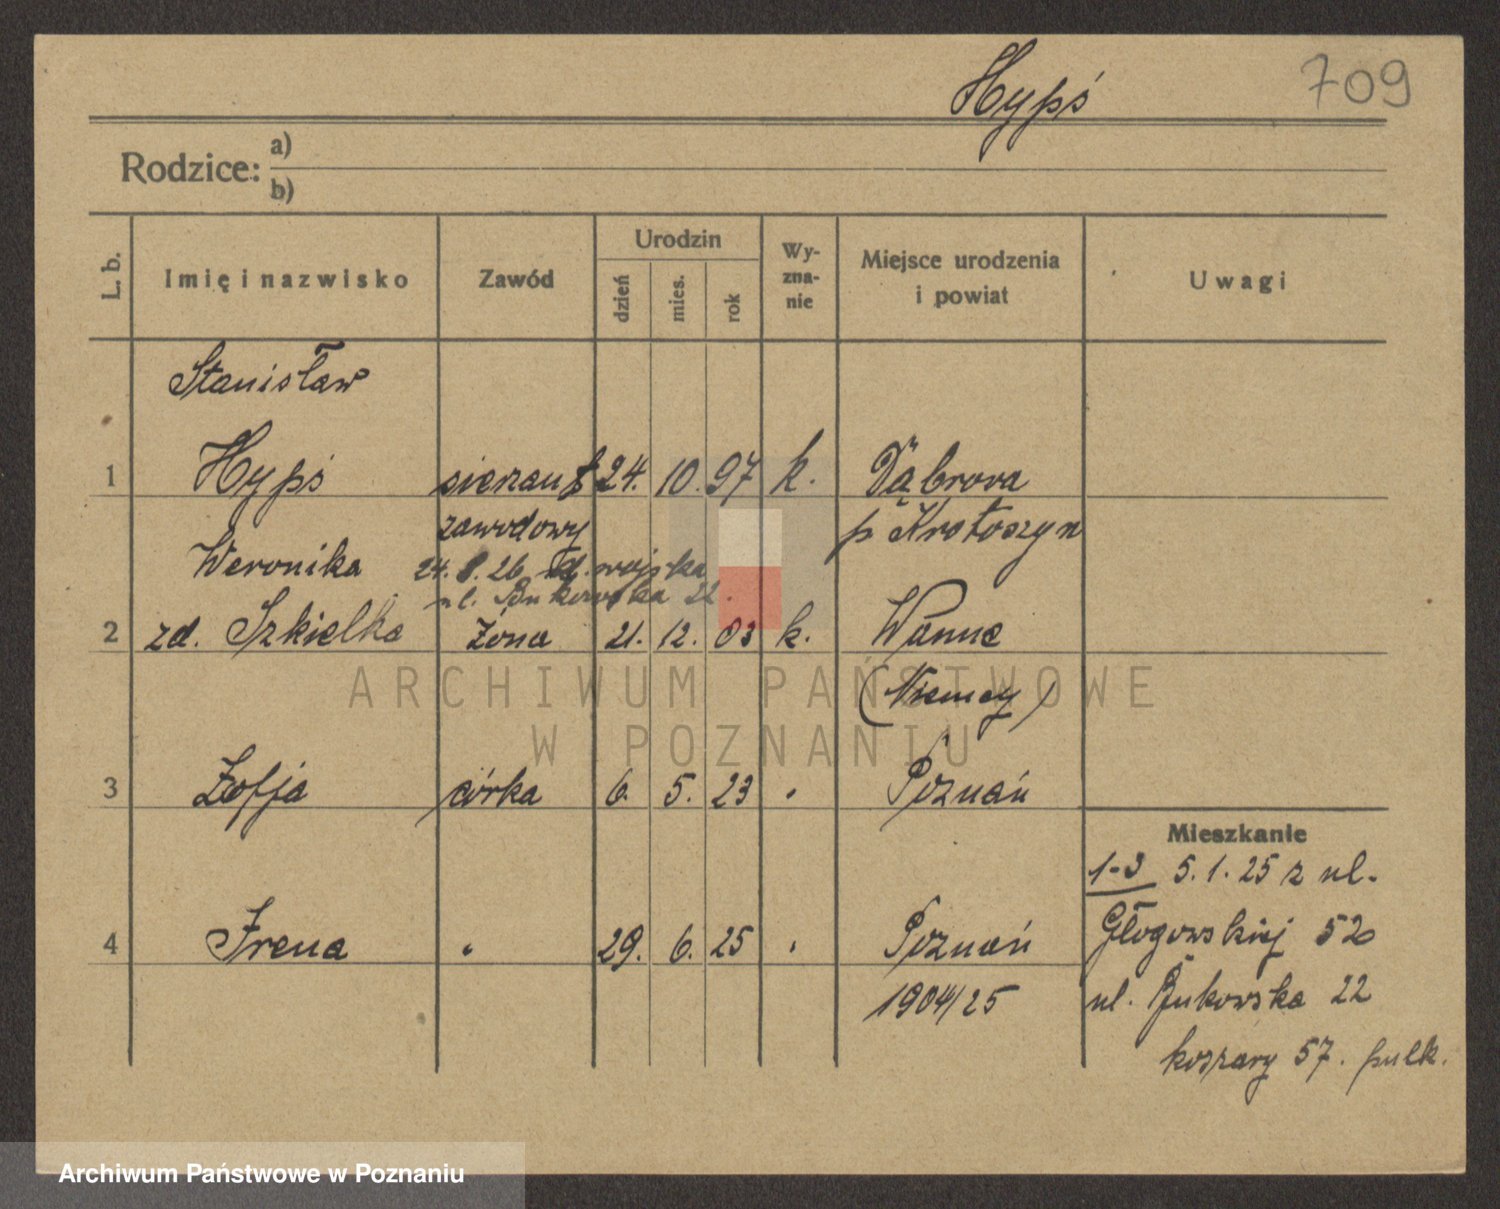 Hypś 709
Rodzice: a)
b)
L. b. Imię i nazwisko Zawód Urodzin dzień mies. rok Wy-zna-nie Miejsce urodzenia i powiat Uwagi
Stanisław
1 Hypś sierzant 24. 10. 97 k. Dąbrowa
zawodowy p Krotoszyn
Weronika 24. 8. 26 wojska
ul. Bukowska 22.
2 zd. Szkielka żona 21. 12. 03 k. Wanne
(Niemcy)
3 Zofja córka 6. 5. 23 " Poznań
Mieszkanie
1-3 5. 1. 25 z ul.
4 Irena " 29. 6. 25 " Poznań
Głogowskiej 52
1904/25
ul. Bukowska 22
koszary 57. pułk.
ARCHIWUM PAŃSTWOWE
W POZNANIU
Archiwum Państwowe w Poznaniu